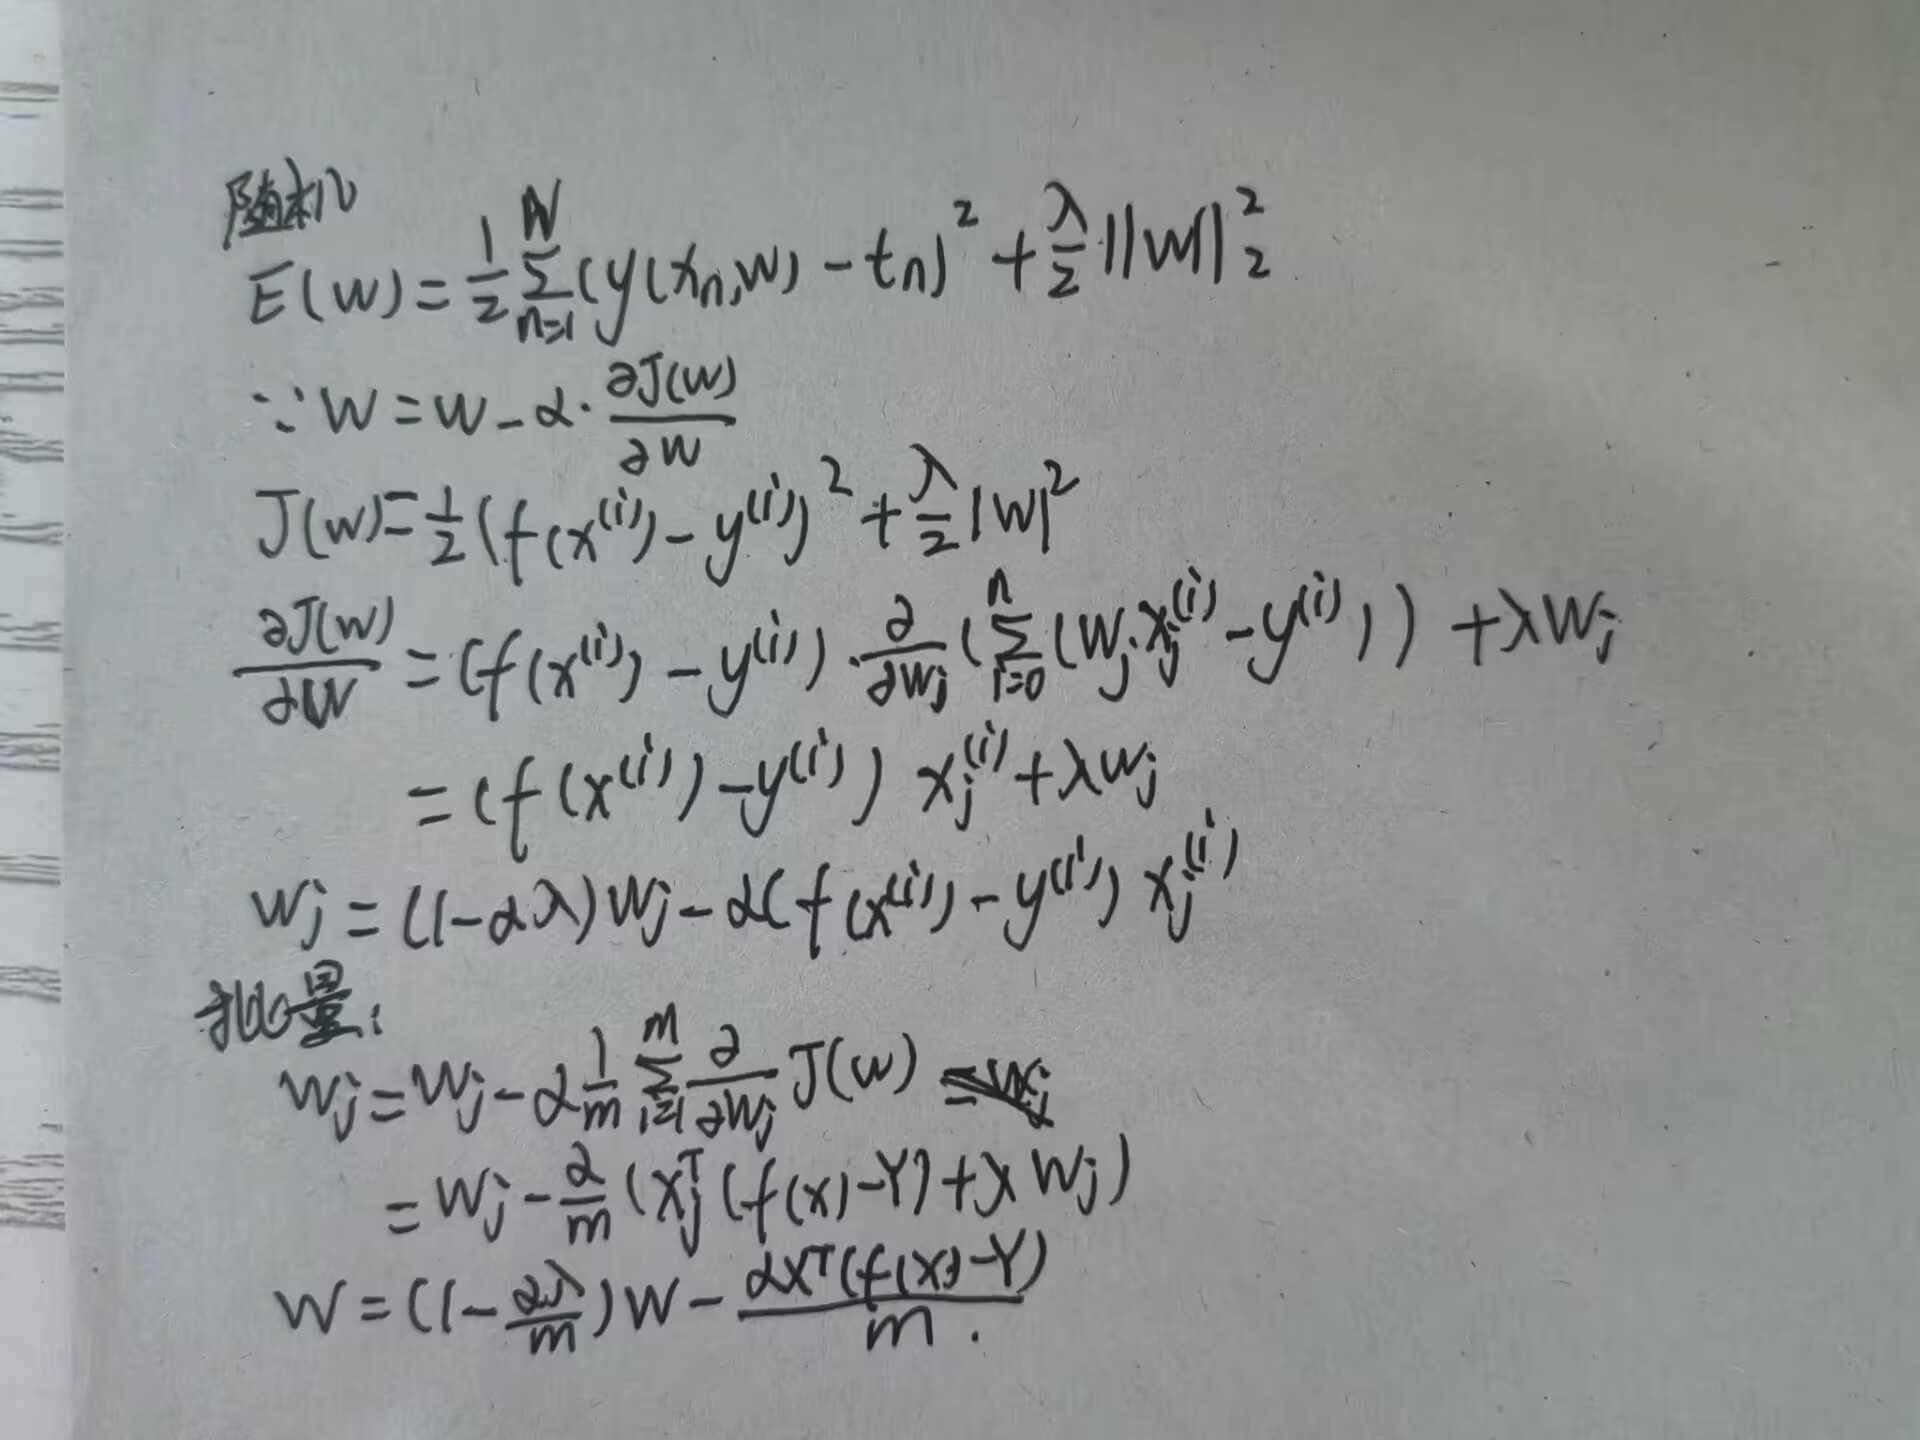 随机
E(w) = \frac{1}{2} \sum_{n=1}^{N} (y(x_n, w) - t_n)^2 + \frac{λ}{2} ||w||_2^2
∵ w = w - α · \frac{∂J(w)}{∂w}
J(w) = \frac{1}{2} (f(x^{(i)}) - y^{(i)})^2 + \frac{λ}{2} |w|^2
\frac{∂J(w)}{∂w} = (f(x^{(i)}) - y^{(i)}) · \frac{∂}{∂w_j} (\sum_{i=0}^{n} (w_j · x_j^{(i)} - y^{(i)})) + λw_j
= (f(x^{(i)}) - y^{(i)}) x_j^{(i)} + λw_j
w_j = (1 - αλ) w_j - α(f(x^{(i)}) - y^{(i)}) x_j^{(i)}
批量:
w_j = w_j - α \frac{1}{m} \sum_{i=1}^{m} \frac{∂}{∂w_j} J(w)
= w_j - \frac{α}{m} (x_j^T (f(x) - Y) + λ w_j)
w = (1 - \frac{αλ}{m}) w - \frac{αX^T (f(X) - Y)}{m}.